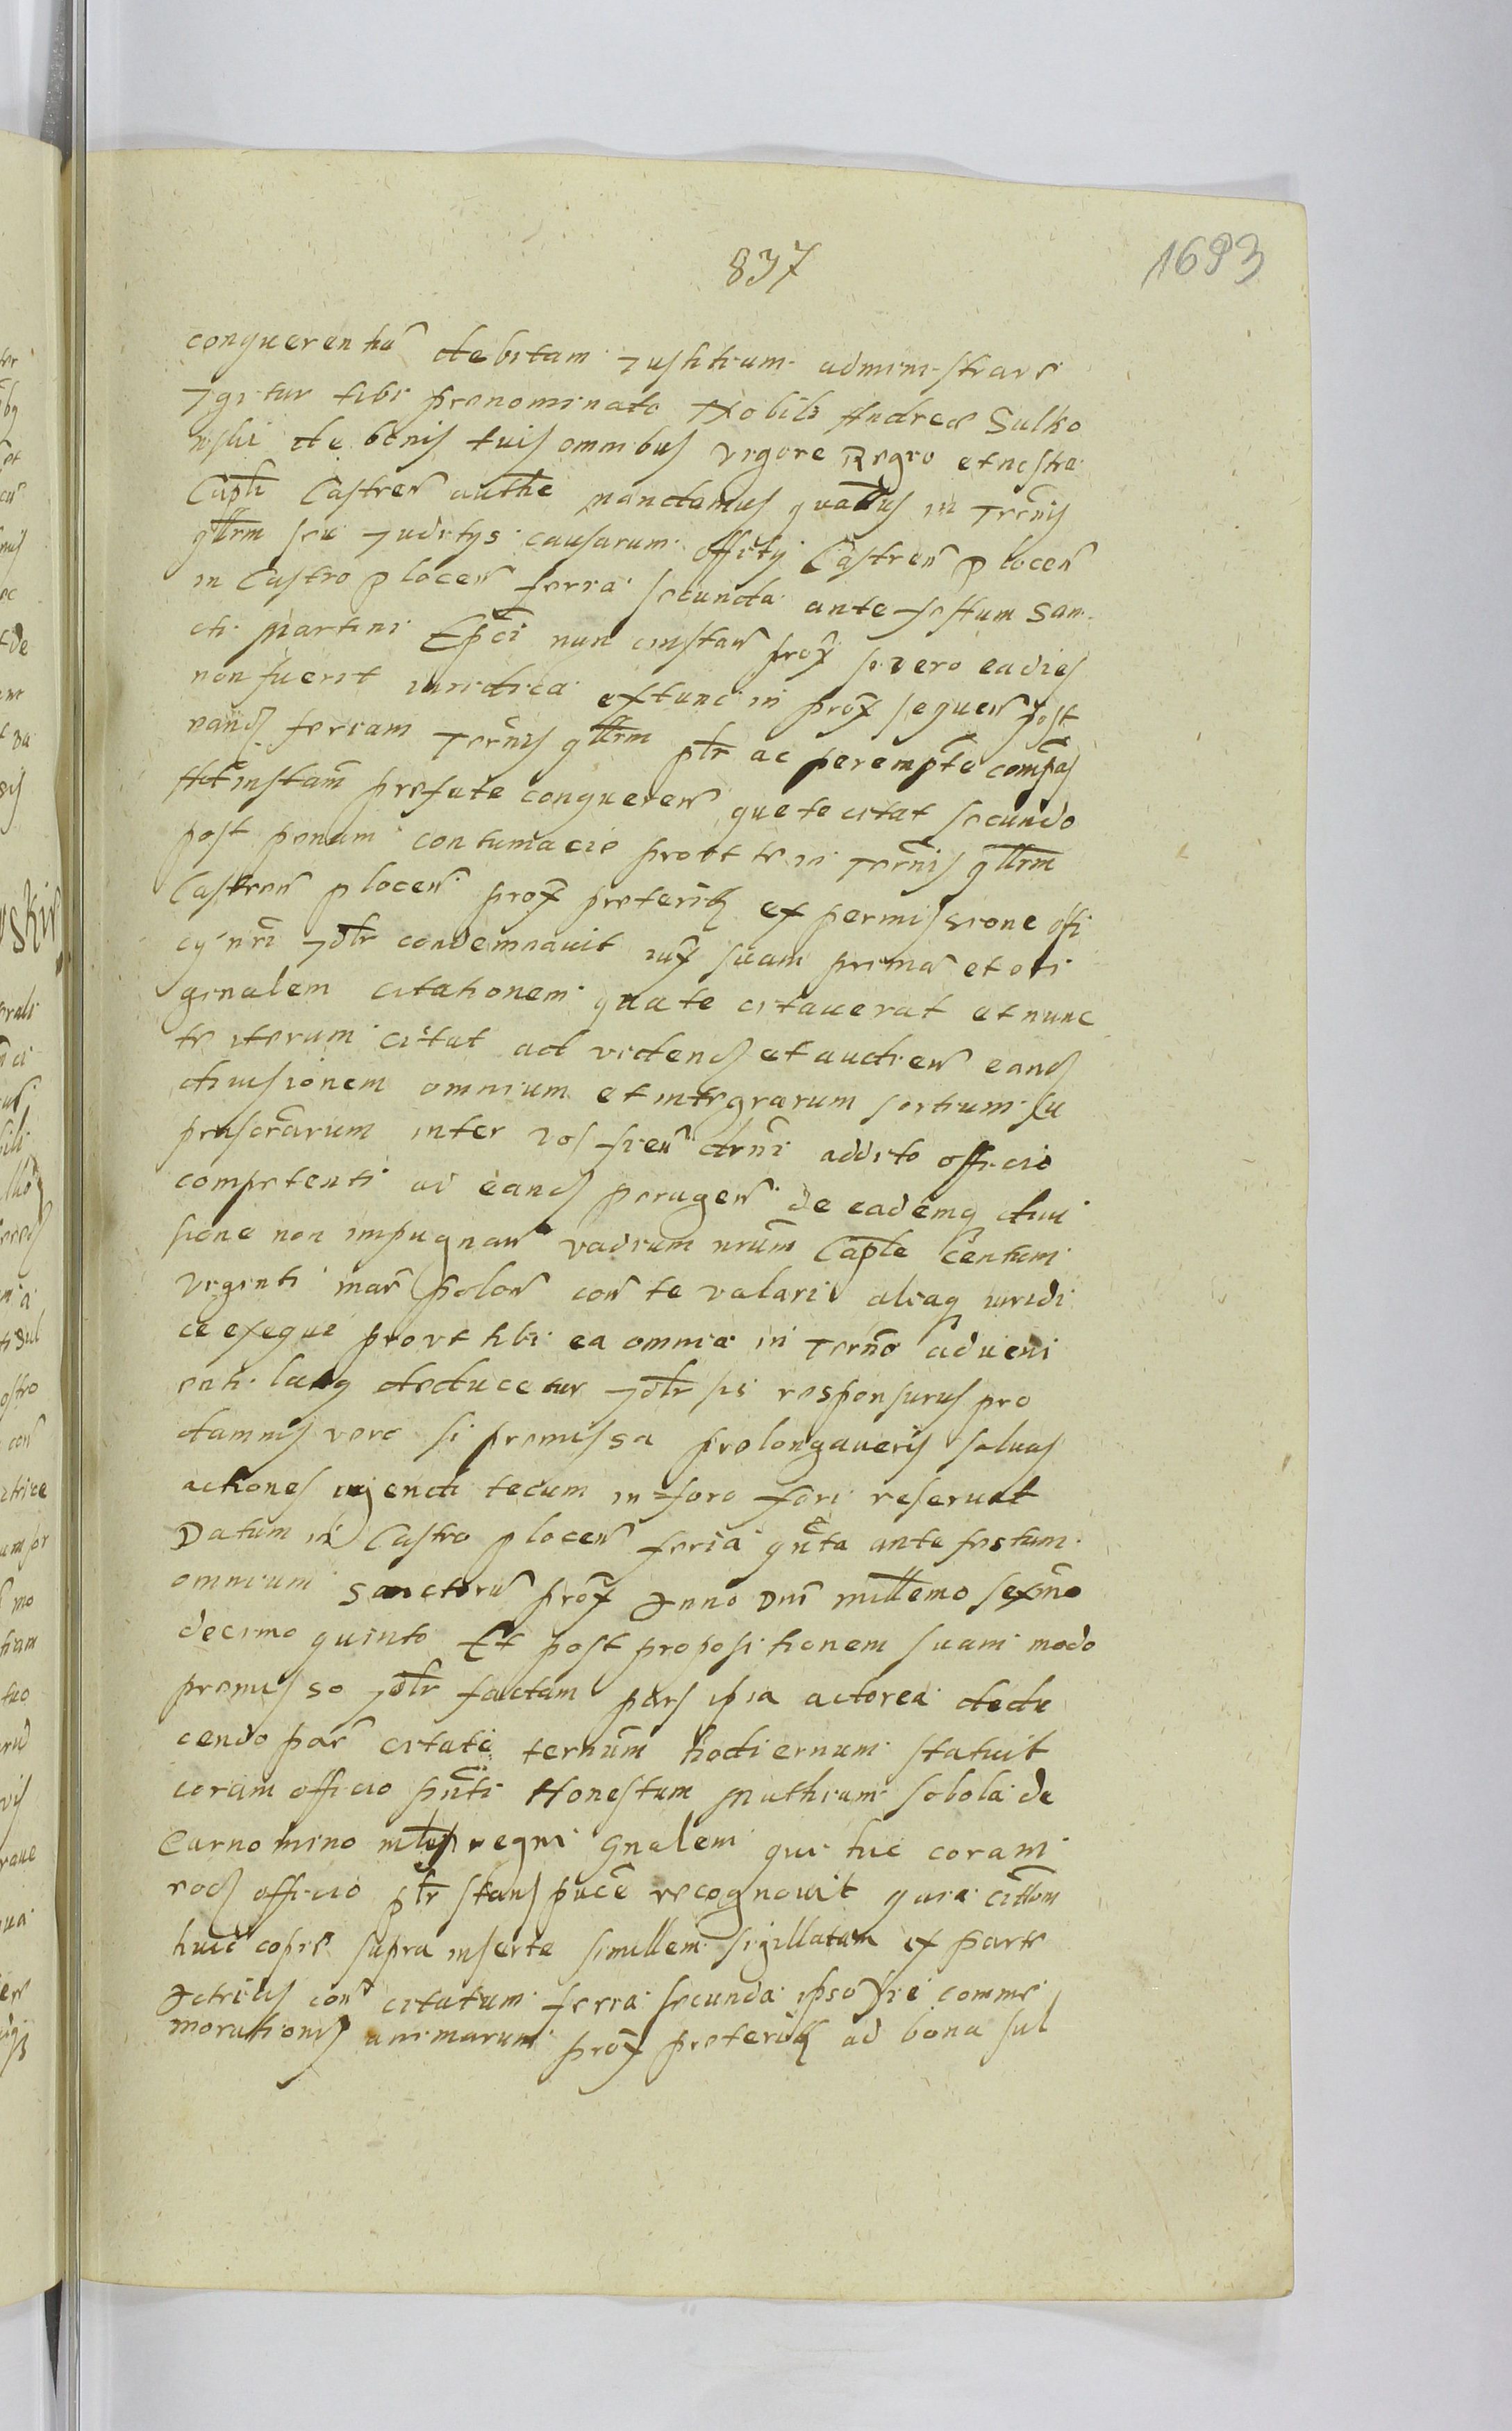 837
1693
conquerentiu debitam Justitiam administrare
Igitur tibi prenominato Nobili Andreæ Sulko
wski de bonis tuis omnibus vigore Regio et nostra
Capli Castren authe mandamus qvatus in Termis
qllrm seu Juditys causarum offity Castren Plocen
in Castro Plocen feria secunda ante festum San
cti Martini Epci nun instan prox si vero ea dies
non fuerit iuridica extunc in prox sequen post
eand feriam Termis qllrm plr ac perempte compas
Ad instam prefate conqueren que te citat secundo
post penam contumacie provt te in Termis qllrm
Castren Plocen prox preteritis ex permissione offi
cy nri Jdlr condemnavit iux suam prima et ori
ginalem citationem qua te citaverat et nunc
te iterum citat ad vidend et audien eand
divisionem omnium et integrarum sortium su
prascrarum inter vos fien drni addito officio
competenti ad eand peragen de eademq divi
sione non impugnan vadium nrum Caple Centum
viginti mar polon con te valari aliaq iuridi
ce exequi provt tibi ea omnia in Termo adveni
enti latiq deducetur Jdlr sis responsurus pro
damnis vero si premissa prolongaveris salvas
actiones agendi tecum in foro fori reservat
Datum in Castro Plocen feria qnta ante festum
omnium Sanctoru prox Anno Dni millemo sexmo
decimo quinto Et post propositionem suam modo
premisso Jdlr factam pars ipsa actorea dedu
cendo par citate termum hodiernum statuit
coram officio pnti Honestum Mathiam Sobola de
Carnomino mlem regni gnalem qui hic coram
eod officio plr stans puce recognovit quia citlom
huic copie supra inserte similem sigillatam ex parte
Actricis con citatum feria secunda ipso die comme
morationis animarum prox preteriti ad bona Sul